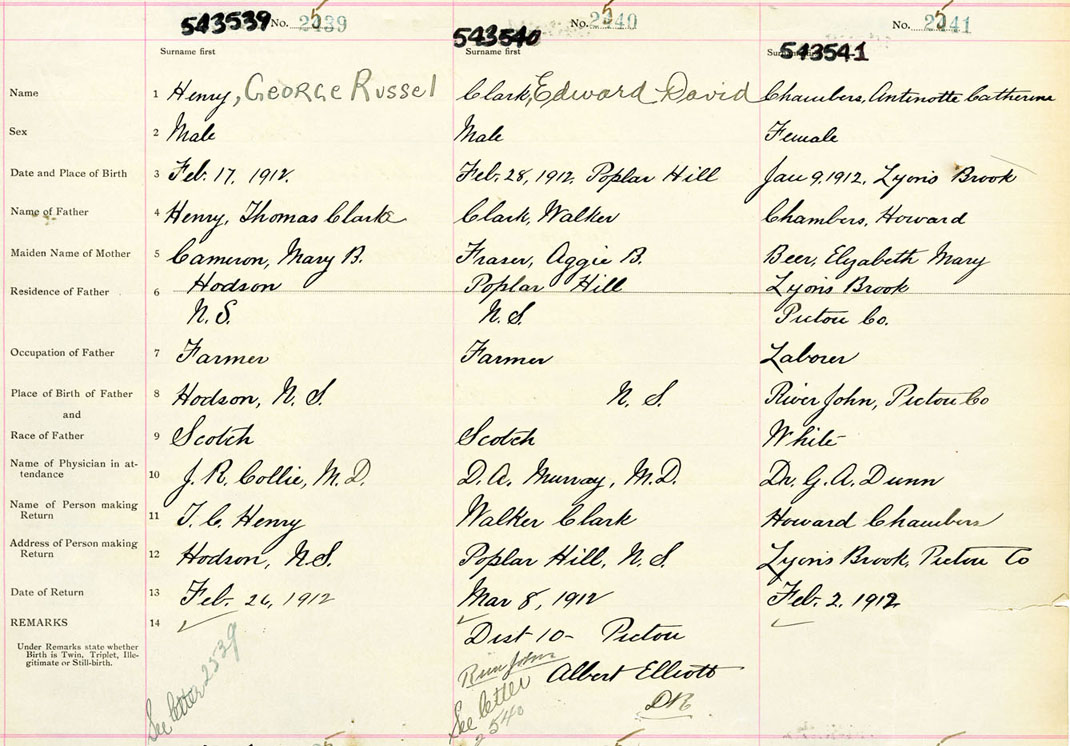 543539 No. 2539 543540 No. 2540 543541 No. 2541
Surname first Surname first Surname first
Name 1 Henry, George Russel Clark, Edward David Chambers, Antinotte Catherine
Sex 2 Male Male Female
Date and Place of Birth 3 Feb. 17, 1912. Feb. 28, 1912, Poplar Hill Jan 9, 1912, Lyons Brook
Name of Father 4 Henry, Thomas Clarke Clark, Walker Chambers, Howard
Maiden Name of Mother 5 Cameron, Mary B. Fraser, Aggie B. Beer, Elyabeth Mary
Residence of Father 6 Hodson Poplar Hill Lyons Brook
N.S. N.S. Pictou Co.
Occupation of Father 7 Farmer Farmer Laborer
Place of Birth of Father 8 Hodson, N.S. N.S. River John, Pictou Co
and
Race of Father 9 Scotch Scotch White
Name of Physician in at-
tendance 10 J. R. Collie, M.D. D. A. Murray, M.D. Dr. G. A. Dunn
Name of Person making
Return 11 T. C. Henry Walker Clark Howard Chambers
Address of Person making
Return 12 Hodson, N.S. Poplar Hill, N.S. Lyons Brook, Pictou Co
Date of Return 13 Feb. 26, 1912 Mar 8, 1912 Feb. 2, 1912
REMARKS 14
Under Remarks state whether
Birth is Twin, Triplet, Ille-
gitimate or Still-birth.
See letter 2539
Dist 10 - Pictou
River John Albert Elliott
DR
See letter
2540